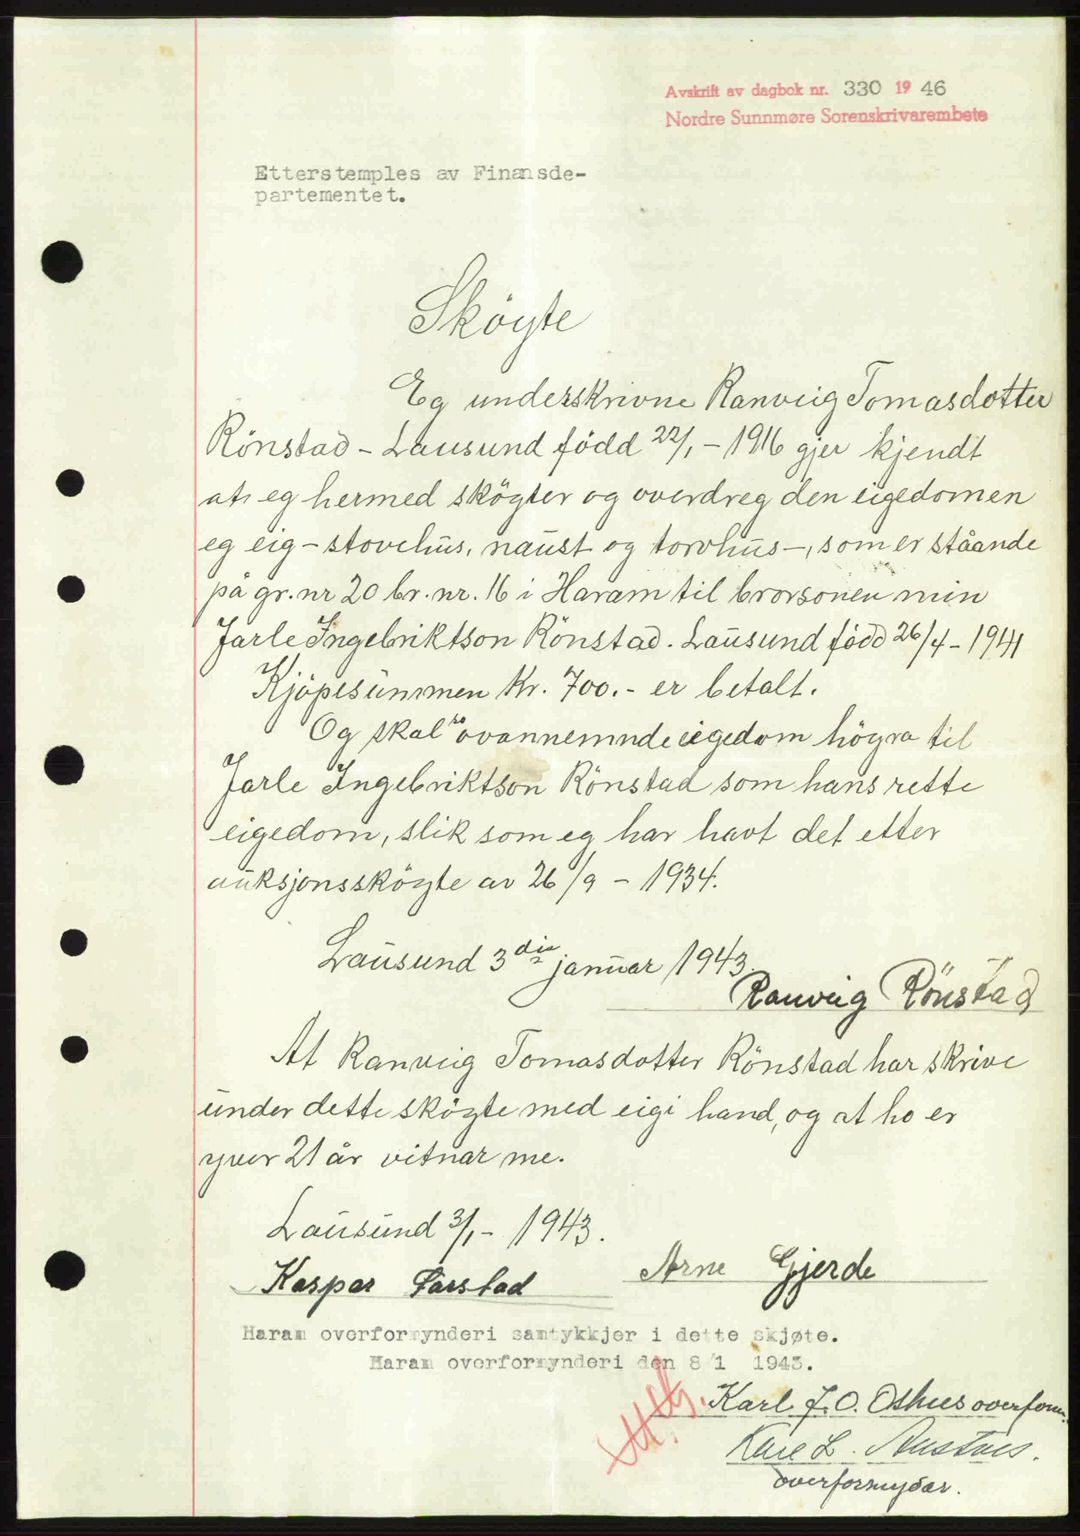 Avskrift av dagbok nr. 330 19 46
Nordre Sunnmøre Sorenskrivarembete
Etterstemples av Finansde-
partementet.
Sköyte
Eg underskrivne Ranveig Tomasdotter
Rönstad - Lausund född 22/1 - 1916 gjer kjendt
at eg hermed sköyter og overdreg den eigedomen
eg eig - stovehus, naust og torvhus -, som er ståande
på gr. nr 20 br. nr. 16 i Haram til brorsonen min
Jarle Ingebriktson Rönstad. Lausund född 26/4 - 1941
Kjöpesummen Kr. 700.- er betalt.
Og skal ovannemnde eigedom höyra til
Jarle Ingebriktson Rönstad som hans rette
eigedom, slik som eg har havt det etter
auksjonssköyte av 26/9 - 1934.
Lausund 3die januar 1943.
Ranveig Rönstad
At Ranveig Tomasdotter Rönstad har skrive
under dette sköyte med eigi hand, og at ho er
yver 21 år vitnar me.
Lausund 3/1 - 1943.
Kaspar Farstad Arne Gjerde
Haram overformynderi samtykkjer i dette skjøte.
Haram overformynderi den 8/1 1943.
Karl J. O. Oshus overform.
Kare L.
overformydar.